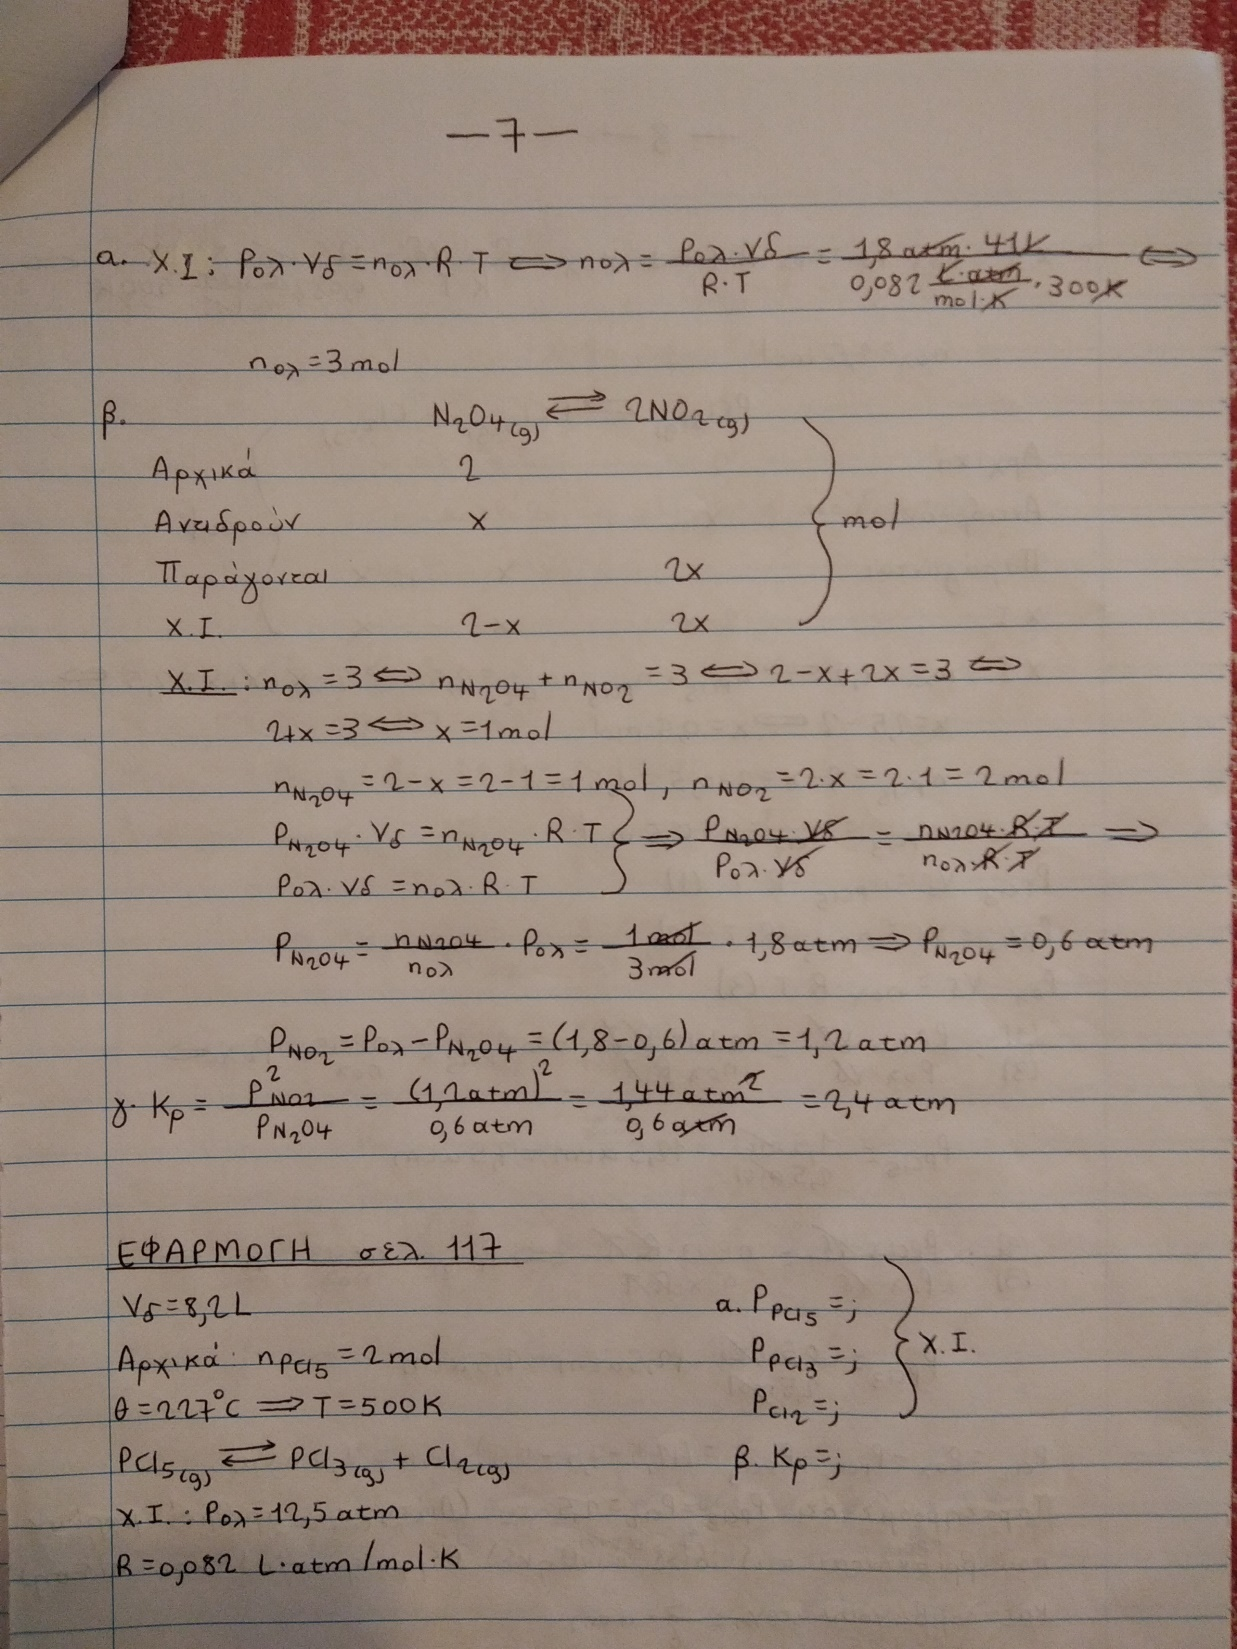 —7—
α. Χ.Ι: Ρολ·Vδ=nολ·R·T ⟺ nολ = Ρολ·Vδ / R·T = 1,8 atm·41L / 0,082 L·atm/mol·K ·300K ⟺
nολ=3mol
β. N2O4(g) ⇌ 2NO2(g)
Αρχικά 2
Αντιδρούν x
Παράγονται 2x
Χ.Ι. 2-x 2x
mol
Χ.Ι.: nολ=3 ⟺ nN2O4+nNO2=3 ⟺ 2-x+2x=3 ⟺
2+x=3 ⟺ x=1mol
nN2O4=2-x=2-1=1mol, nNO2=2·x=2·1=2mol
PN2O4·Vδ=nN2O4·R·T
Pολ·Vδ=nολ·R·T
⟹ PN2O4·Vδ / Pολ·Vδ = nN2O4·R·T / nολ·R·T ⟹
PN2O4 = nN2O4 / nολ · Pολ = 1mol / 3mol · 1,8atm ⟹ PN2O4=0,6 atm
PNO2=Pολ-PN2O4=(1,8-0,6)atm=1,2atm
γ. Kp = P²NO2 / PN2O4 = (1,2atm)² / 0,6atm = 1,44atm² / 0,6atm = 2,4atm
ΕΦΑΡΜΟΓΗ σελ. 117
Vδ=8,2L α. PPCl5=;
Αρχικά: nPCl5=2mol PPCl3=; Χ.Ι.
θ=227°C ⟹ T=500K PCl2=;
PCl5(g) ⇌ PCl3(g)+Cl2(g) β. Kp=;
Χ.Ι.: Pολ=12,5atm
R=0,082 L·atm/mol·K